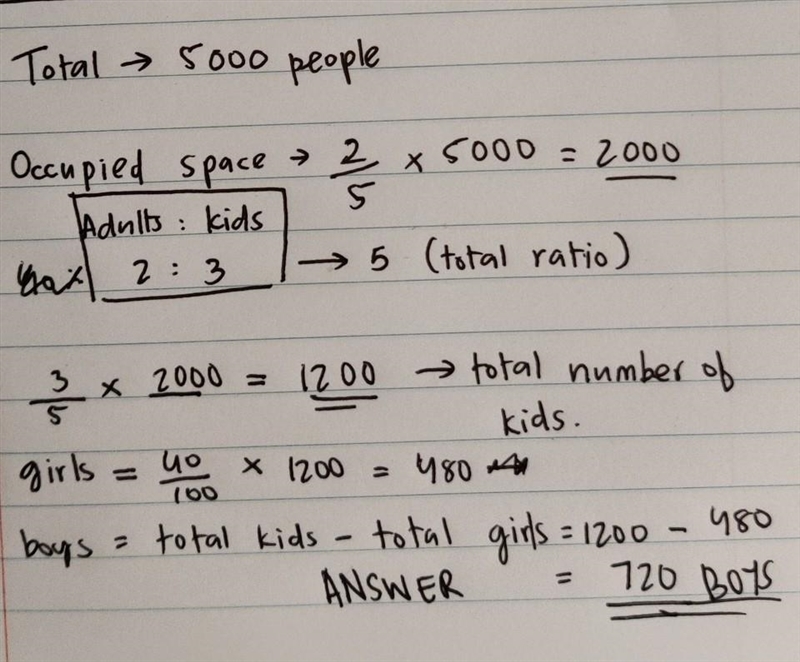 Total → 5000 people
Occupied space → 2/5 × 5000 = 2000
Adults : kids
2 : 3 → 5 (total ratio)
3/5 × 2000 = 1200 → total number of
kids.
girls = 40/100 × 1200 = 480
boys = total kids - total girls = 1200 - 480
ANSWER = 720 BOYS